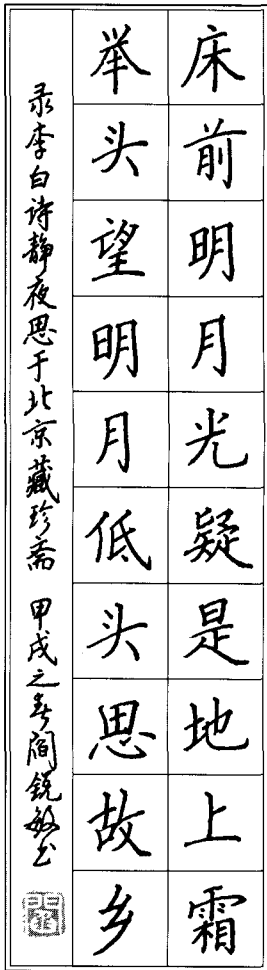 床前明月光疑是地上霜
举头望明月低头思故乡
录李白诗静夜思于北京藏珍斋 甲戌之春阎锐敏书